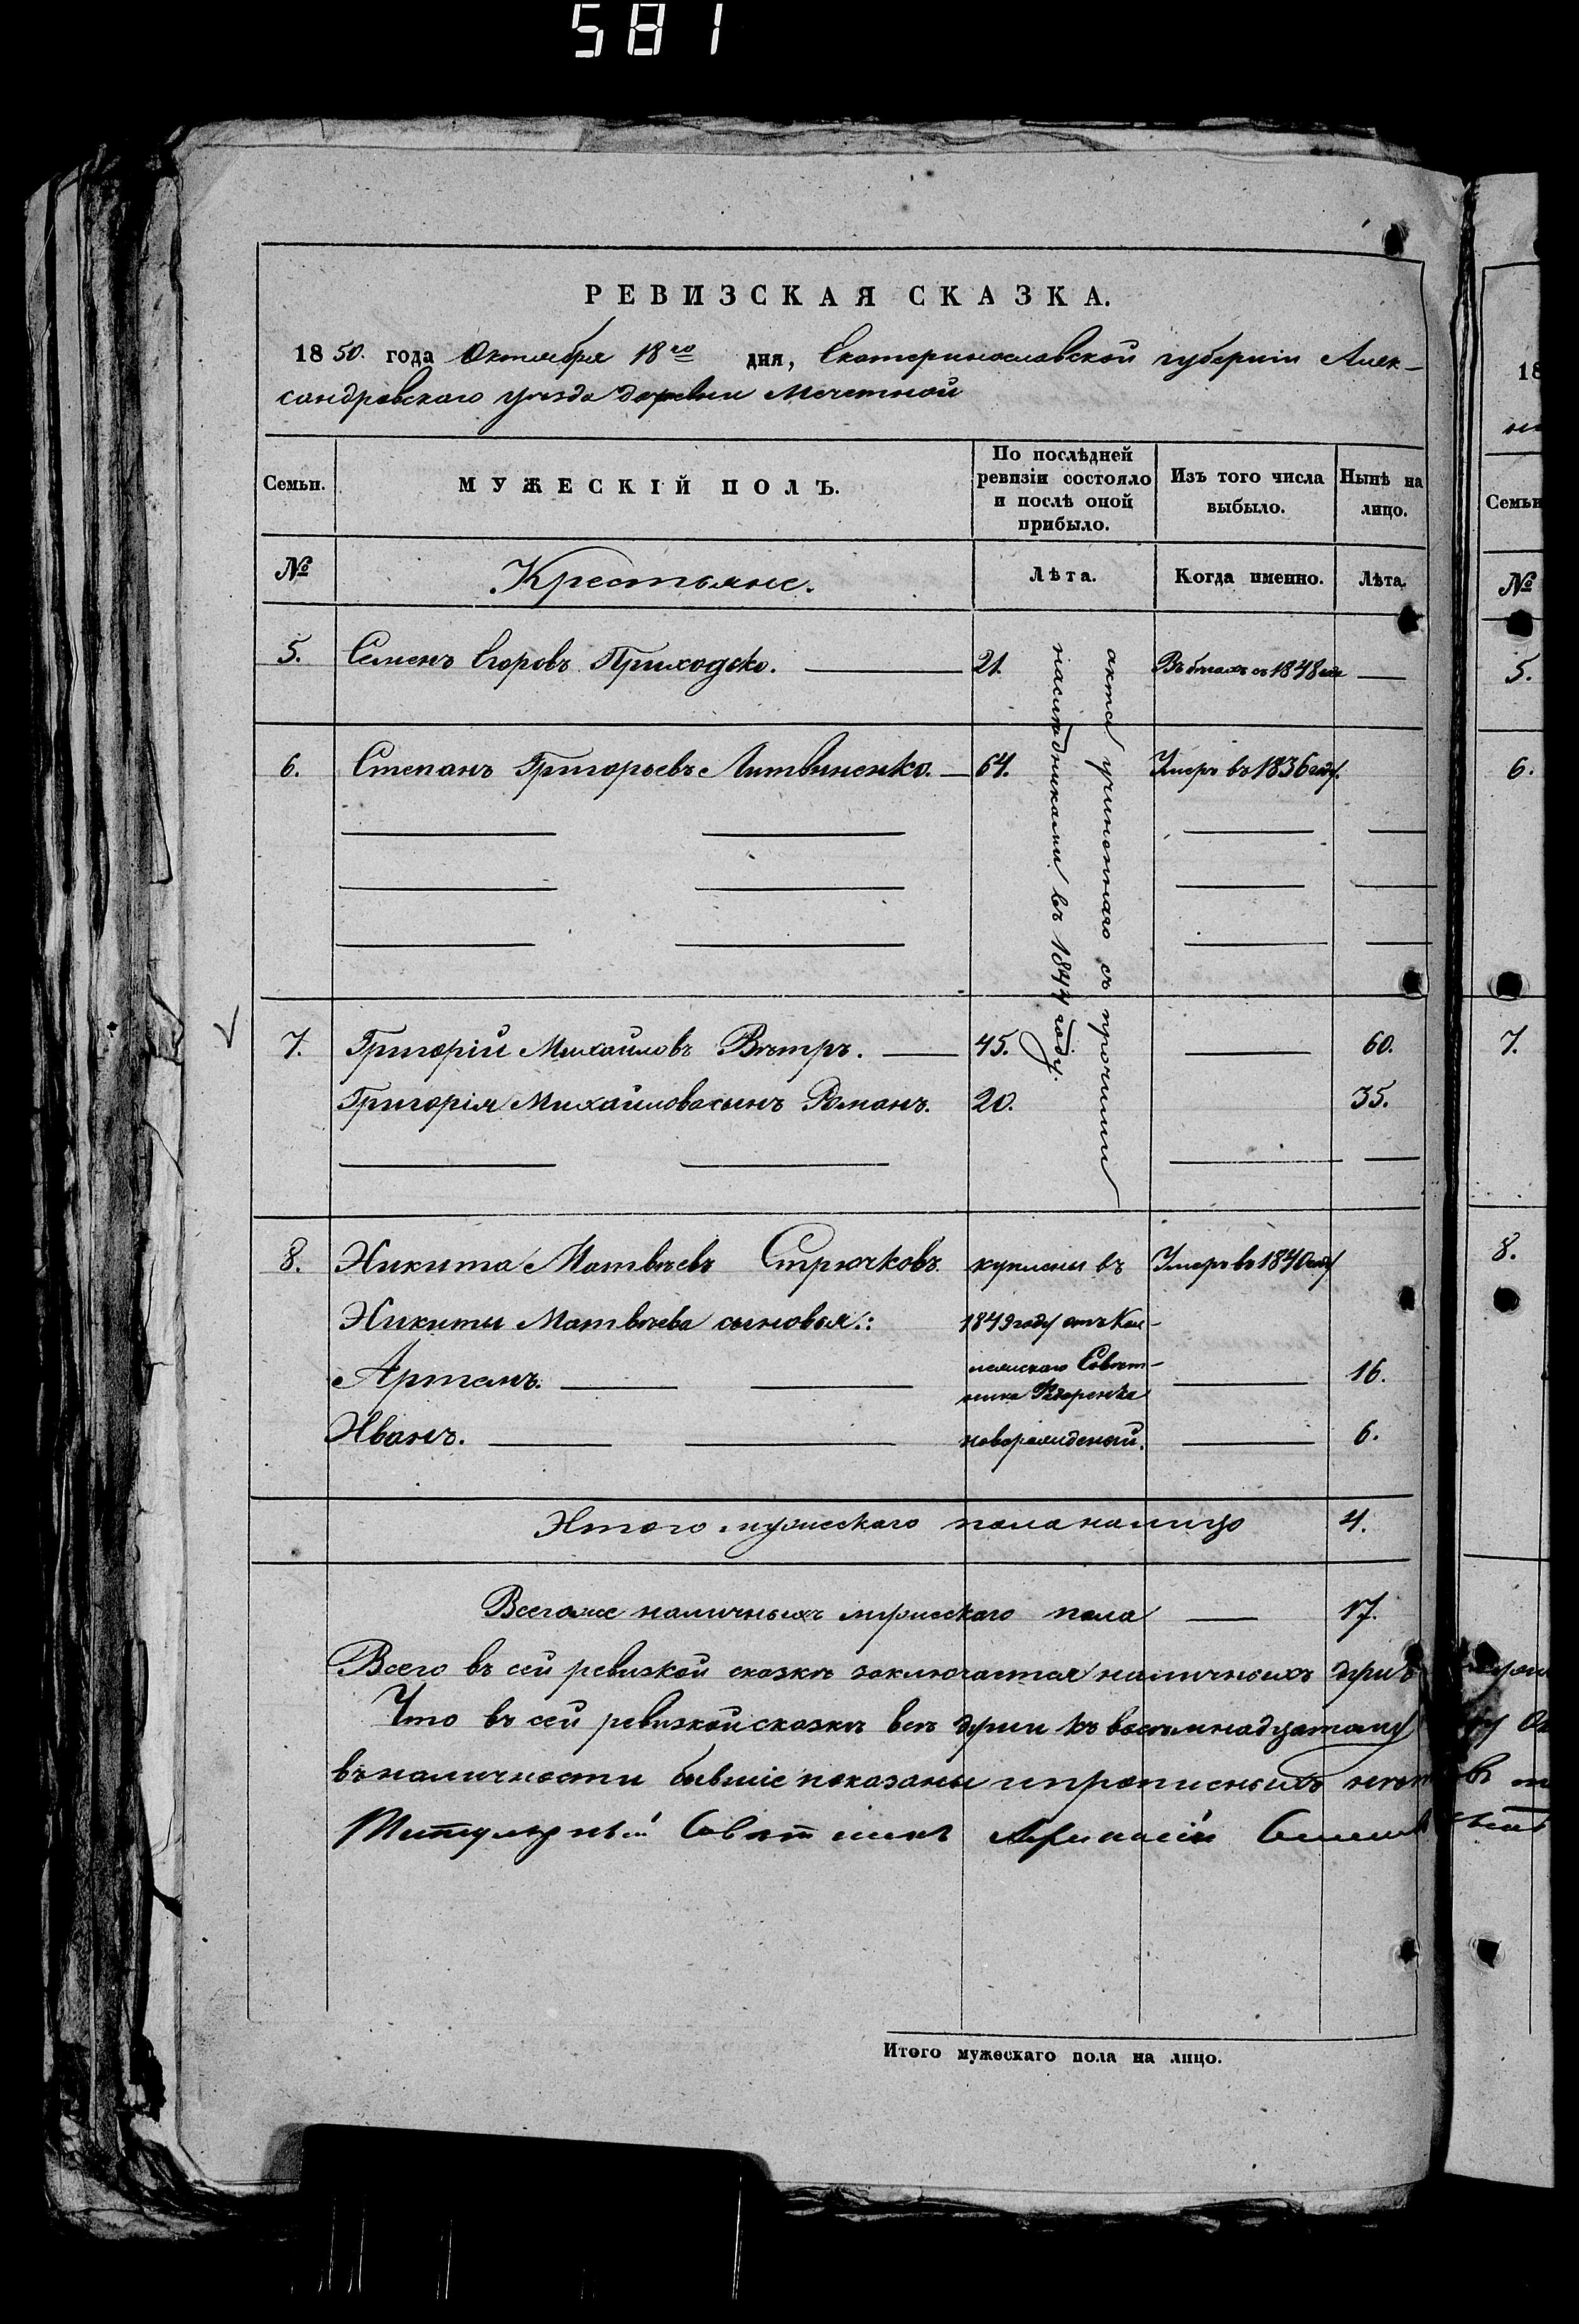 581
РЕВИЗСКАЯ СКАЗКА.
1850. года Октября 18го дня, Екатеринославской губерніи Алек-
сандровскаго уѣзда деревни Мечетной
Семьи.
МУЖЕСКІЙ ПОЛЪ.
По послѣдней ревизіи состояло и послѣ оной прибыло.
Изъ того числа выбыло.
Нынѣ на лицо.
№ Крестьяне. Лѣта. Когда именно. Лѣта.
5. Семенъ Егоровъ Приходько. 21. Въ бѣгахъ съ 1848
6. Степанъ Григорьевъ Литвиненко. 64. Умеръ въ 1836 году.
7. Григорій Михайловъ Вѣтръ. 45. 60.
Григорія Михайлова сынъ Романъ. 20. 35.
акта учиненнаго съ прочими
наслѣдниками въ 1844 году.
8. Никита Матвѣевъ Стрючковъ куплены въ Умеръ въ 1840 году
Никиты Матвѣева сыновья: 1849 году отъ Кол-
лежскаго Совѣт-
Артемъ. 16.
ника
Иванъ. новорожденый. 6.
Итого мужескаго пола налицо 4.
Всего же наличныхъ мужескаго пола 17.
Всего въ сей ревизкой сказкѣ заключается наличныхъ душъ
Что въ сей ревизкой сказкѣ всѣ души къ восемнадцатому
въ наличности бывшіе показаны и прописныхъ
Титулярный Совѣтникъ
Итого мужескаго пола на лицо.
18
Семьи
№
5.
6.
7.
8.